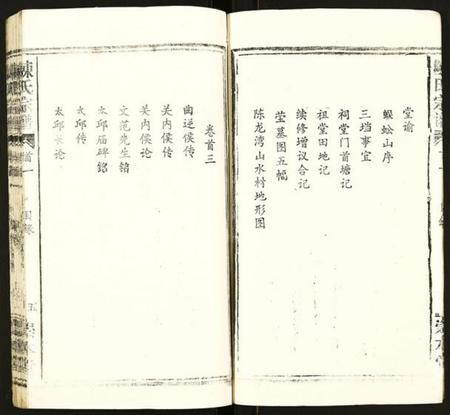 堂谕
蜈蚣山序
三垱事宜
祠堂门首塘记
祖堂田地记
续修增议合记
茔墓图五幅
陈龙湾山水村地形图
卷首三
曲逆侯传
关内侯传
关内侯论
文范先生铭
太邱庙碑铭
太邱传
太邱长论
陳氏宗譜
首一
目录
五